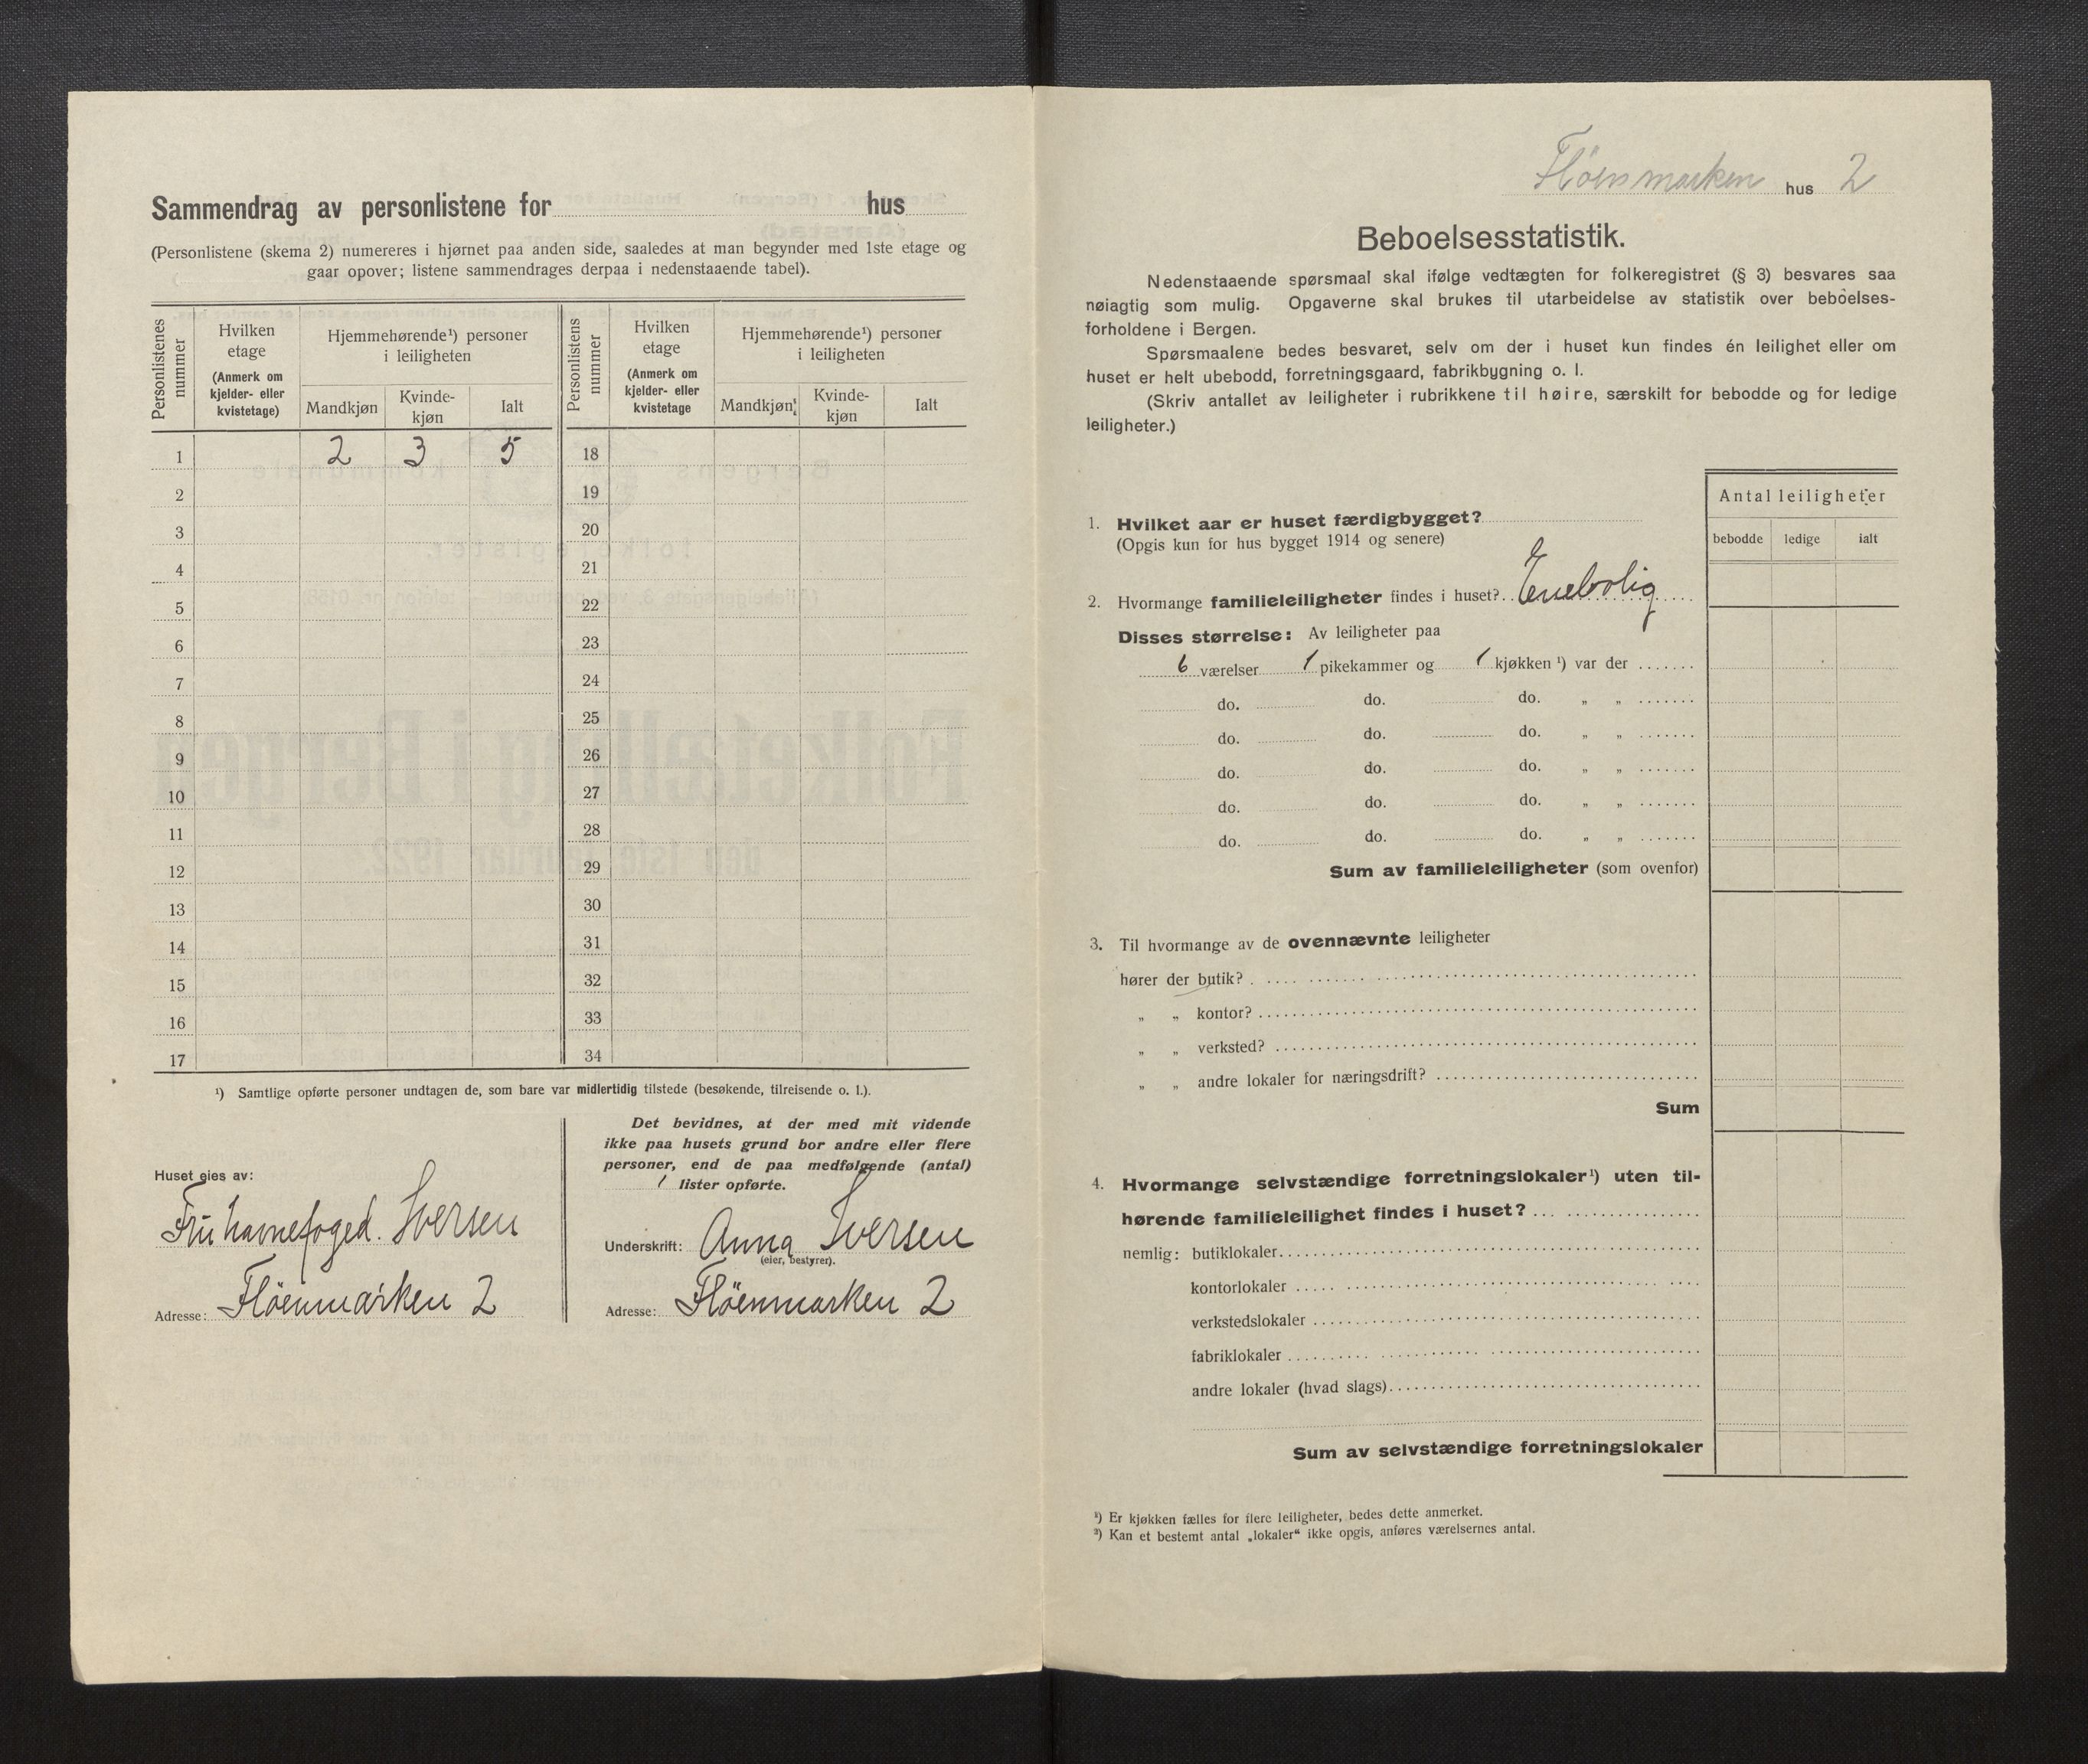 Sammendrag av personlistene for hus
(Personlistene (skema 2) numereres i hjørnet paa anden side, saaledes at man begynder med 1ste etage og
gaar opover; listene sammendrages derpaa i nedenstaaende tabel).
Personlistenes nummer
Hvilken etage (Anmerk om kjelder- eller kvistetage)
Hjemmehørende¹) personer i leiligheten
Mandkjøn Kvinde-kjøn Ialt
Personlistens nummer
Hvilken etage (Anmerk om kjelder- eller kvistetage
Hjemmehørende¹) personer i leiligheten
Mandkjøn Kvinde-kjøn Ialt
1 2 3 5 18
2 19
3 20
4 21
5 22
6 23
7 24
8 25
9 26
10 27
11 28
12 29
13 30
14 31
15 32
16 33
17 34
¹) Samtlige opførte personer undtagen de, som bare var midlertidig tilstede (besøkende, tilreisende o. l.).
Huset eies av:
Fru havnefoged. Iversen
Adresse: Flöenmarken 2
Det bevidnes, at der med mit vidende
ikke paa husets grund bor andre eller flere
personer, end de paa medfølgende (antal)
1 lister opførte.
Underskrift: Anna Iversen
(eier, bestyrer).
Adresse: Flöenmarken 2
Fløensmarken hus 2
Beboelsesstatistik.
Nedenstaaende spørsmaal skal ifølge vedtægten for folkeregistret (§ 3) besvares saa
nøiagtig som mulig. Opgaverne skal brukes til utarbeidelse av statistik over beboelses-
forholdene i Bergen.
Spørsmaalene bedes besvaret, selv om der i huset kun findes én leilighet eller om
huset er helt ubebodd, forretningsgaard, fabrikbygning o. l.
(Skriv antallet av leiligheter i rubrikkene til høire, særskilt for bebodde og for ledige
leiligheter.)
Antal leiligheter
bebodde ledige ialt
1. Hvilket aar er huset færdigbygget?
(Opgis kun for hus bygget 1914 og senere)
2. Hvormange familieleiligheter findes i huset? Enebolig
Disses størrelse: Av leiligheter paa
6 værelser 1 pikekammer og 1 kjøkken ¹) var der
do. do. do. „ „
do. do. do. „ „
do. do. do. „ „
do. do. do. „ „
do. do. do. „ „
Sum av familieleiligheter (som ovenfor)
3. Til hvormange av de ovennævnte leiligheter
hører der butik?
„ „ kontor?
„ „ verksted?
„ „ andre lokaler for næringsdrift?
Sum
4. Hvormange selvstændige forretningslokaler¹) uten til-
hørende familieleilighet findes i huset?
nemlig: butiklokaler
kontorlokaler
verkstedslokaler
fabriklokaler
andre lokaler (hvad slags)
Sum av selvstændige forretningslokaler
¹) Er kjøkken fælles for flere leiligheter, bedes dette anmerket.
²) Kan et bestemt antal „lokaler“ ikke opgis, anføres værelsernes antal.